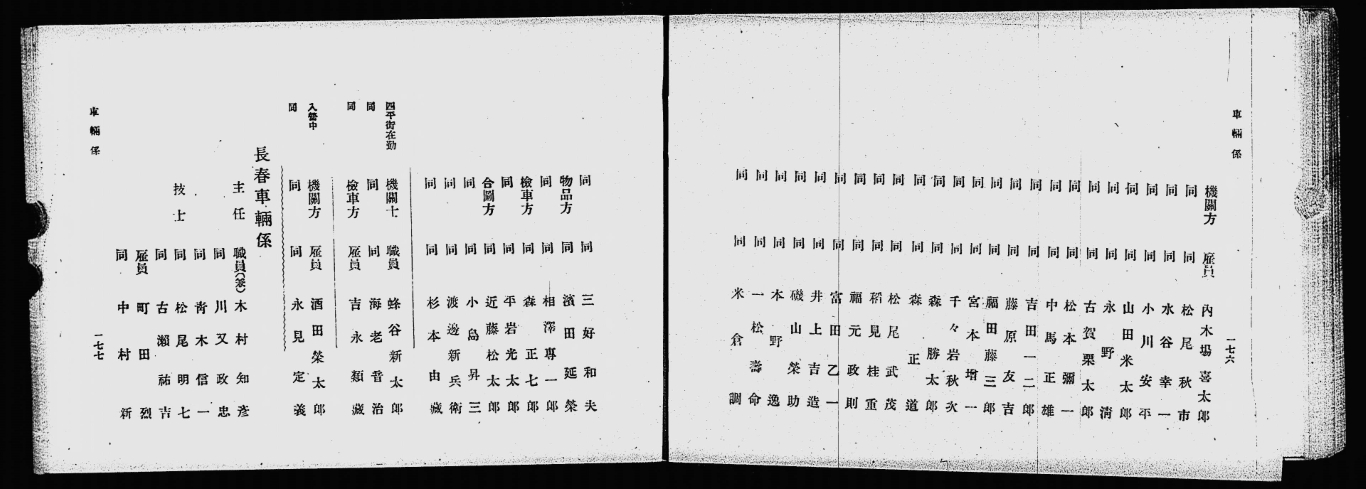 車輛係
一七六
機關方 雇員 內木場喜太郎
同 同 松尾秋市
同 同 水谷幸一
同 同 小川安平
同 同 山田米太郎
同 同 永野清
同 同 古賀栗太郎
同 同 松本彌一
同 同 中馬正雄
同 同 吉田一二郎
同 同 藤原友吉
同 同 宮本增一
同 同 福田藤三郎
同 同 千々岩秋次
同 同 森勝太郎
同 同 森正道
同 同 松尾武茂
同 同 稻見桂重
同 同 福元政則
同 同 富田乙一
同 同 井上吉造
同 同 磯山榮助
同 同 本野逸
同 同 一松壽命
同 同 米倉調
同 同 三好和夫
物品方 同 濱田延榮
同 同 相澤專一郎
檢車方 同 森正七郎
同 同 平岩光太郎
合圖方 同 近藤松太郎
同 同 小島昇三
同 同 渡邊新兵衛
同 同 杉本由藏
四平街在勤 機關士 職員 蜂谷新太郎
同 同 同 海老音治
同 檢車方 雇員 吉永類藏
入營中 機關方 雇員 酒田榮太郎
同 同 同 永見定義
長春車輛係
主任 職員(茶) 木村知彥
同 川又政忠
同 青木信一
技士 同 松尾明七
同 古瀨祐吉
雇員 町田烈
同 中村新
車輛係
一七七